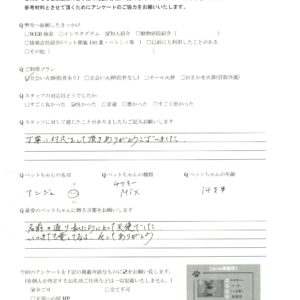 参考材料とさせて頂くためにアンケートのご協力をお願いいたします。
Q 弊社へ依頼したきっかけ?
□WEB検索 □インスタグラム ☑知人紹介 □動物病院紹介( )
□情報会社紹介(ペット葬儀110番・ペンシィ等) □以前にも利用したことがある
□その他( )
Q ご利用プラン
☑立会い火葬(拾骨あり) □立会い火葬(拾骨なし) □合同火葬 □おまかせ火葬(引取供養)
Q スタッフの対応はどうでしたか
□すごく良かった ☑良かった □普通 □悪かった □すごく悪かった
Q スタッフに対して感じたことがありましたらご記入お願いします
丁寧に対応をして頂きありがとうございました。
Q ペットちゃんの名前 Q ペットちゃんの種類 Q ペットちゃんの年齢
アンジュ
チワワ
MIX
14才
Q 最愛のペットちゃんに贈る言葉をお願いします
名前の通り私たちにとって天使でした
いつまでも愛してるよ ありがとう
今回のアンケートを下記の掲載可能なものに☑をお願い致します。
(※個人を特定するお名前ご住所などは一切記載いたしません)
☑全て可 □全て不可